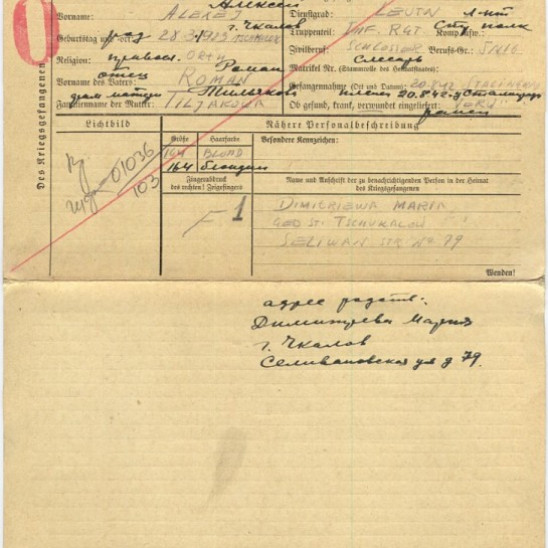 Алексей
Vorname: ALEKEJ
Dienstgrad: LEUTN л-нт
г. Чкалов
Стр. полк
Geburtstag und -ort: 28.3.1923
Truppenteil: INF. RGT Komp. usw.:
Religion: ORTH
Роман
Zivilberuf: SCHLOSSER Berufs-Gr.:
слесарь
отец
Matrikel Nr. (Stammrolle des Heimatstaates):
Vorname des Vaters: ROMAN
Gefangennahme (Ort und Datum): 20.8.42
Тилякова
плен 20.8.42 г.
Familienname der Mutter: TILJAKOWA
Ob gesund, krank, verwundet eingeliefert:
ранен
Des Kriegsgefangenen
Lichtbild
Nähere Personalbeschreibung
Größe
Haarfarbe
Besondere Kennzeichen:
164
BLOND
164
блондин
01036
103
Fingerabdruck
des rechten! Zeigefingers
F 1
Name und Anschrift der zu benachrichtigenden Person in der Heimat
des Kriegsgefangenen
DIMITRIEWA MARIA
GEB ST. TSCHKALOW
SELIWAN STR No 79
Wenden!
адрес родств:
Димитриева Мария
г. Чкалов
Селивановская ул д 79.